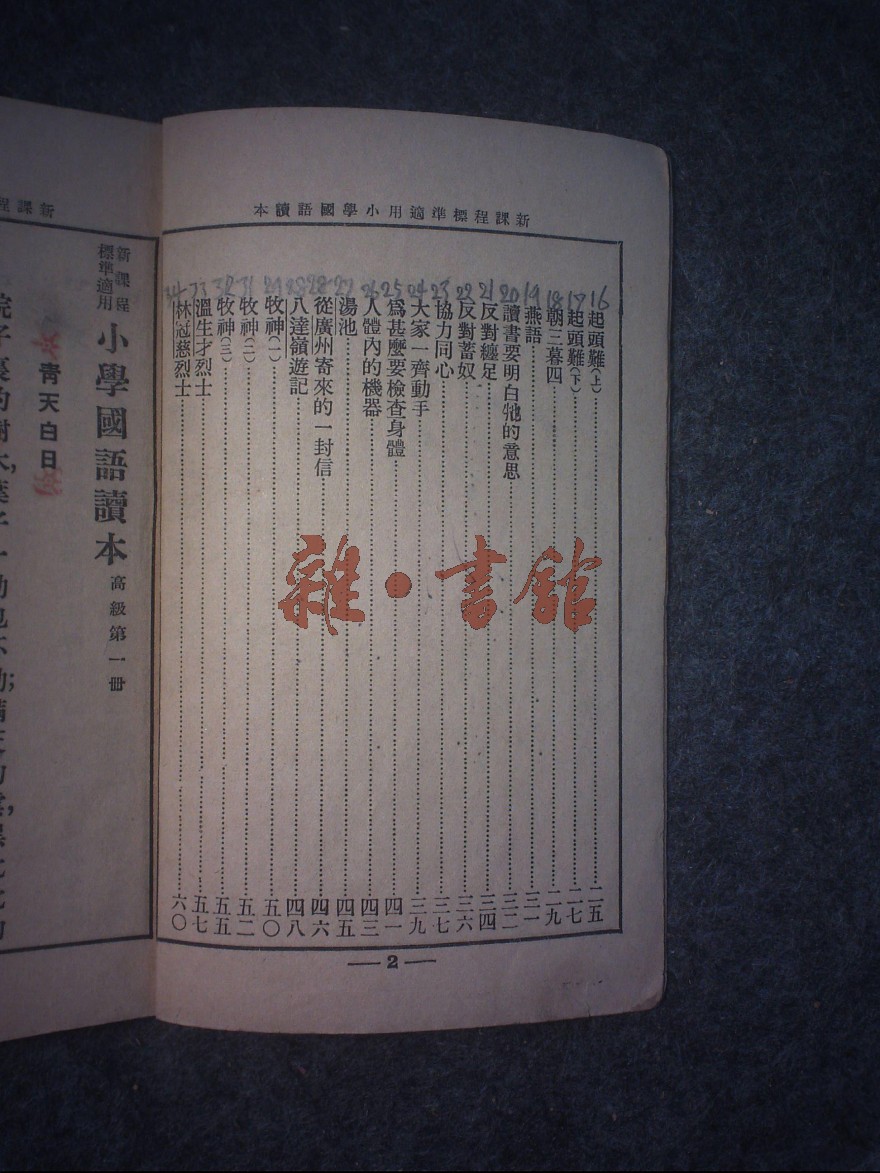 新課程標準適用小學國語讀本
16 起頭難(上) 二五
17 起頭難(下) 二七
18 朝三暮四 二九
19 燕語 三一
20 讀書要明白牠的意思 三二
21 反對纏足 三四
22 反對蓄奴 三六
23 協力同心 三七
24 大家一齊動手 三九
25 爲甚麼要檢查身體 四一
26 人體內的機器 四三
27 湯池 四五
28 從廣州寄來的一封信 四六
28 八達嶺遊記 四八
29 牧神(一) 五〇
31 牧神(二) 五二
32 牧神(三) 五五
33 溫生才烈士 五七
34 林冠慈烈士 六〇
2
雜·書館
新課程
新課程標準適用
小學國語讀本
高級第一冊
青天白日